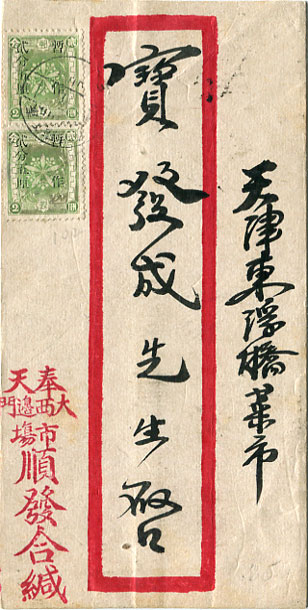 天津東浮橋菜市
寶發成先生啟
暫作
貳分五厘
暫作
貳分五厘
奉天
大西邊門
市場
順發合緘